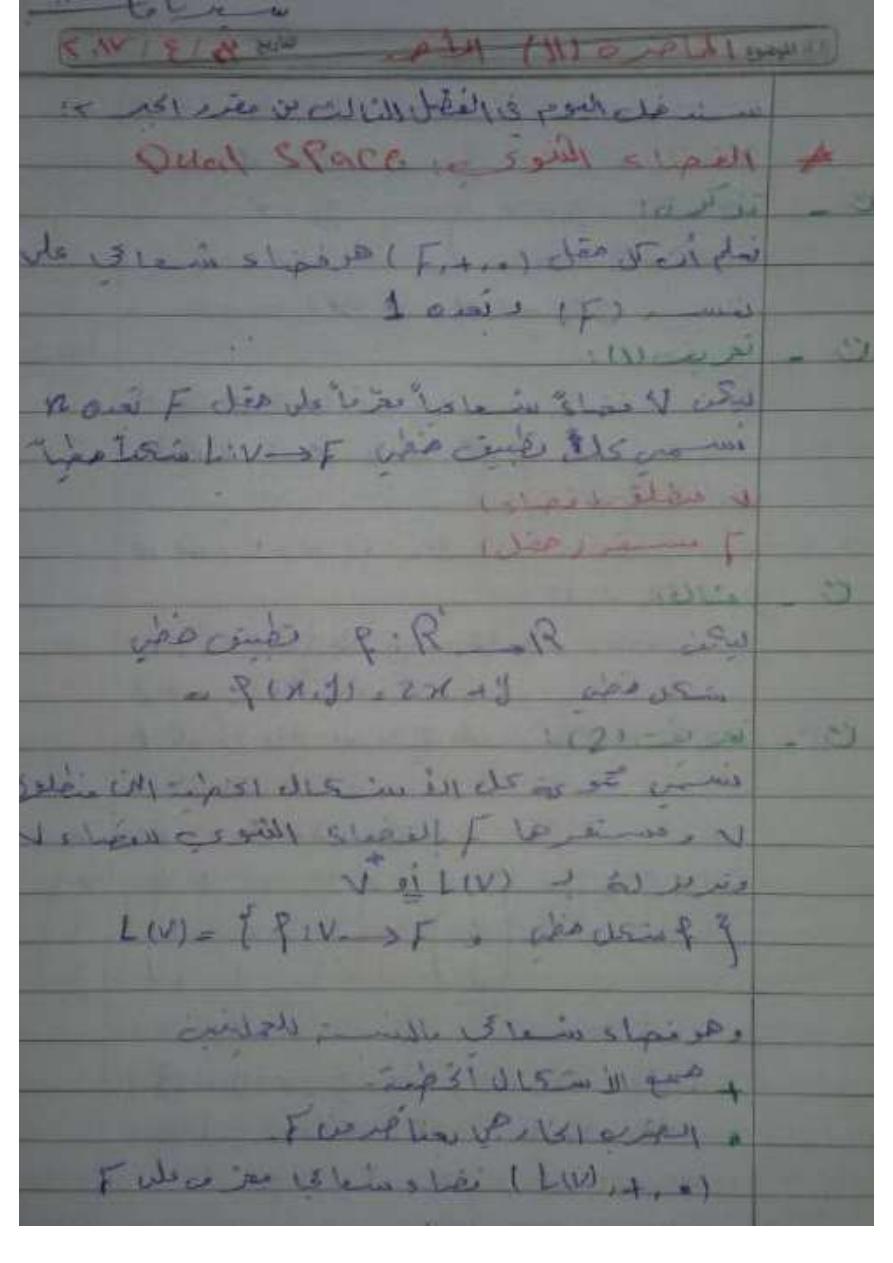 الموضوع المحاضرة (11) التاريخ / ٤ / ٢٠١٧
سندخل اليوم في الفصل الثالث من مقرر الجبر ٢:
* الفضاء الثنوي: Dual SPace
ت - تذكرة:
نعلم أن كل حقل (F,+,•) هو فضاء شعاعي على
نفسه (F) و بُعده 1
ت - تعريف (1):
ليكن V فضاءً شعاعياً معرّفاً على حقل F بُعده n
نسمي كل تطبيق خطي L:V→F شكلاً خطياً
V منطلق (فضاء)
F مستقر (حقل)
ت - مثال:
ليكن f : R → R تطبيق خطي
شكل خطي f(x,y) = 2x + y
ت - تعريف (2):
نسمي مجموعة كل الأشكال الخطية التي منطلقها
V ومستقرها F الفضاء الثنوي للفضاء V
ونرمز له بـ L(V) أو V*
L(V) = { f : V → F , f شكل خطي }
وهو فضاء شعاعي بالنسبة للعمليتين
+ جمع الأشكال الخطية
• الضرب الخارجي بعناصر من F
(L(V),+,•) فضاء شعاعي معرف على F